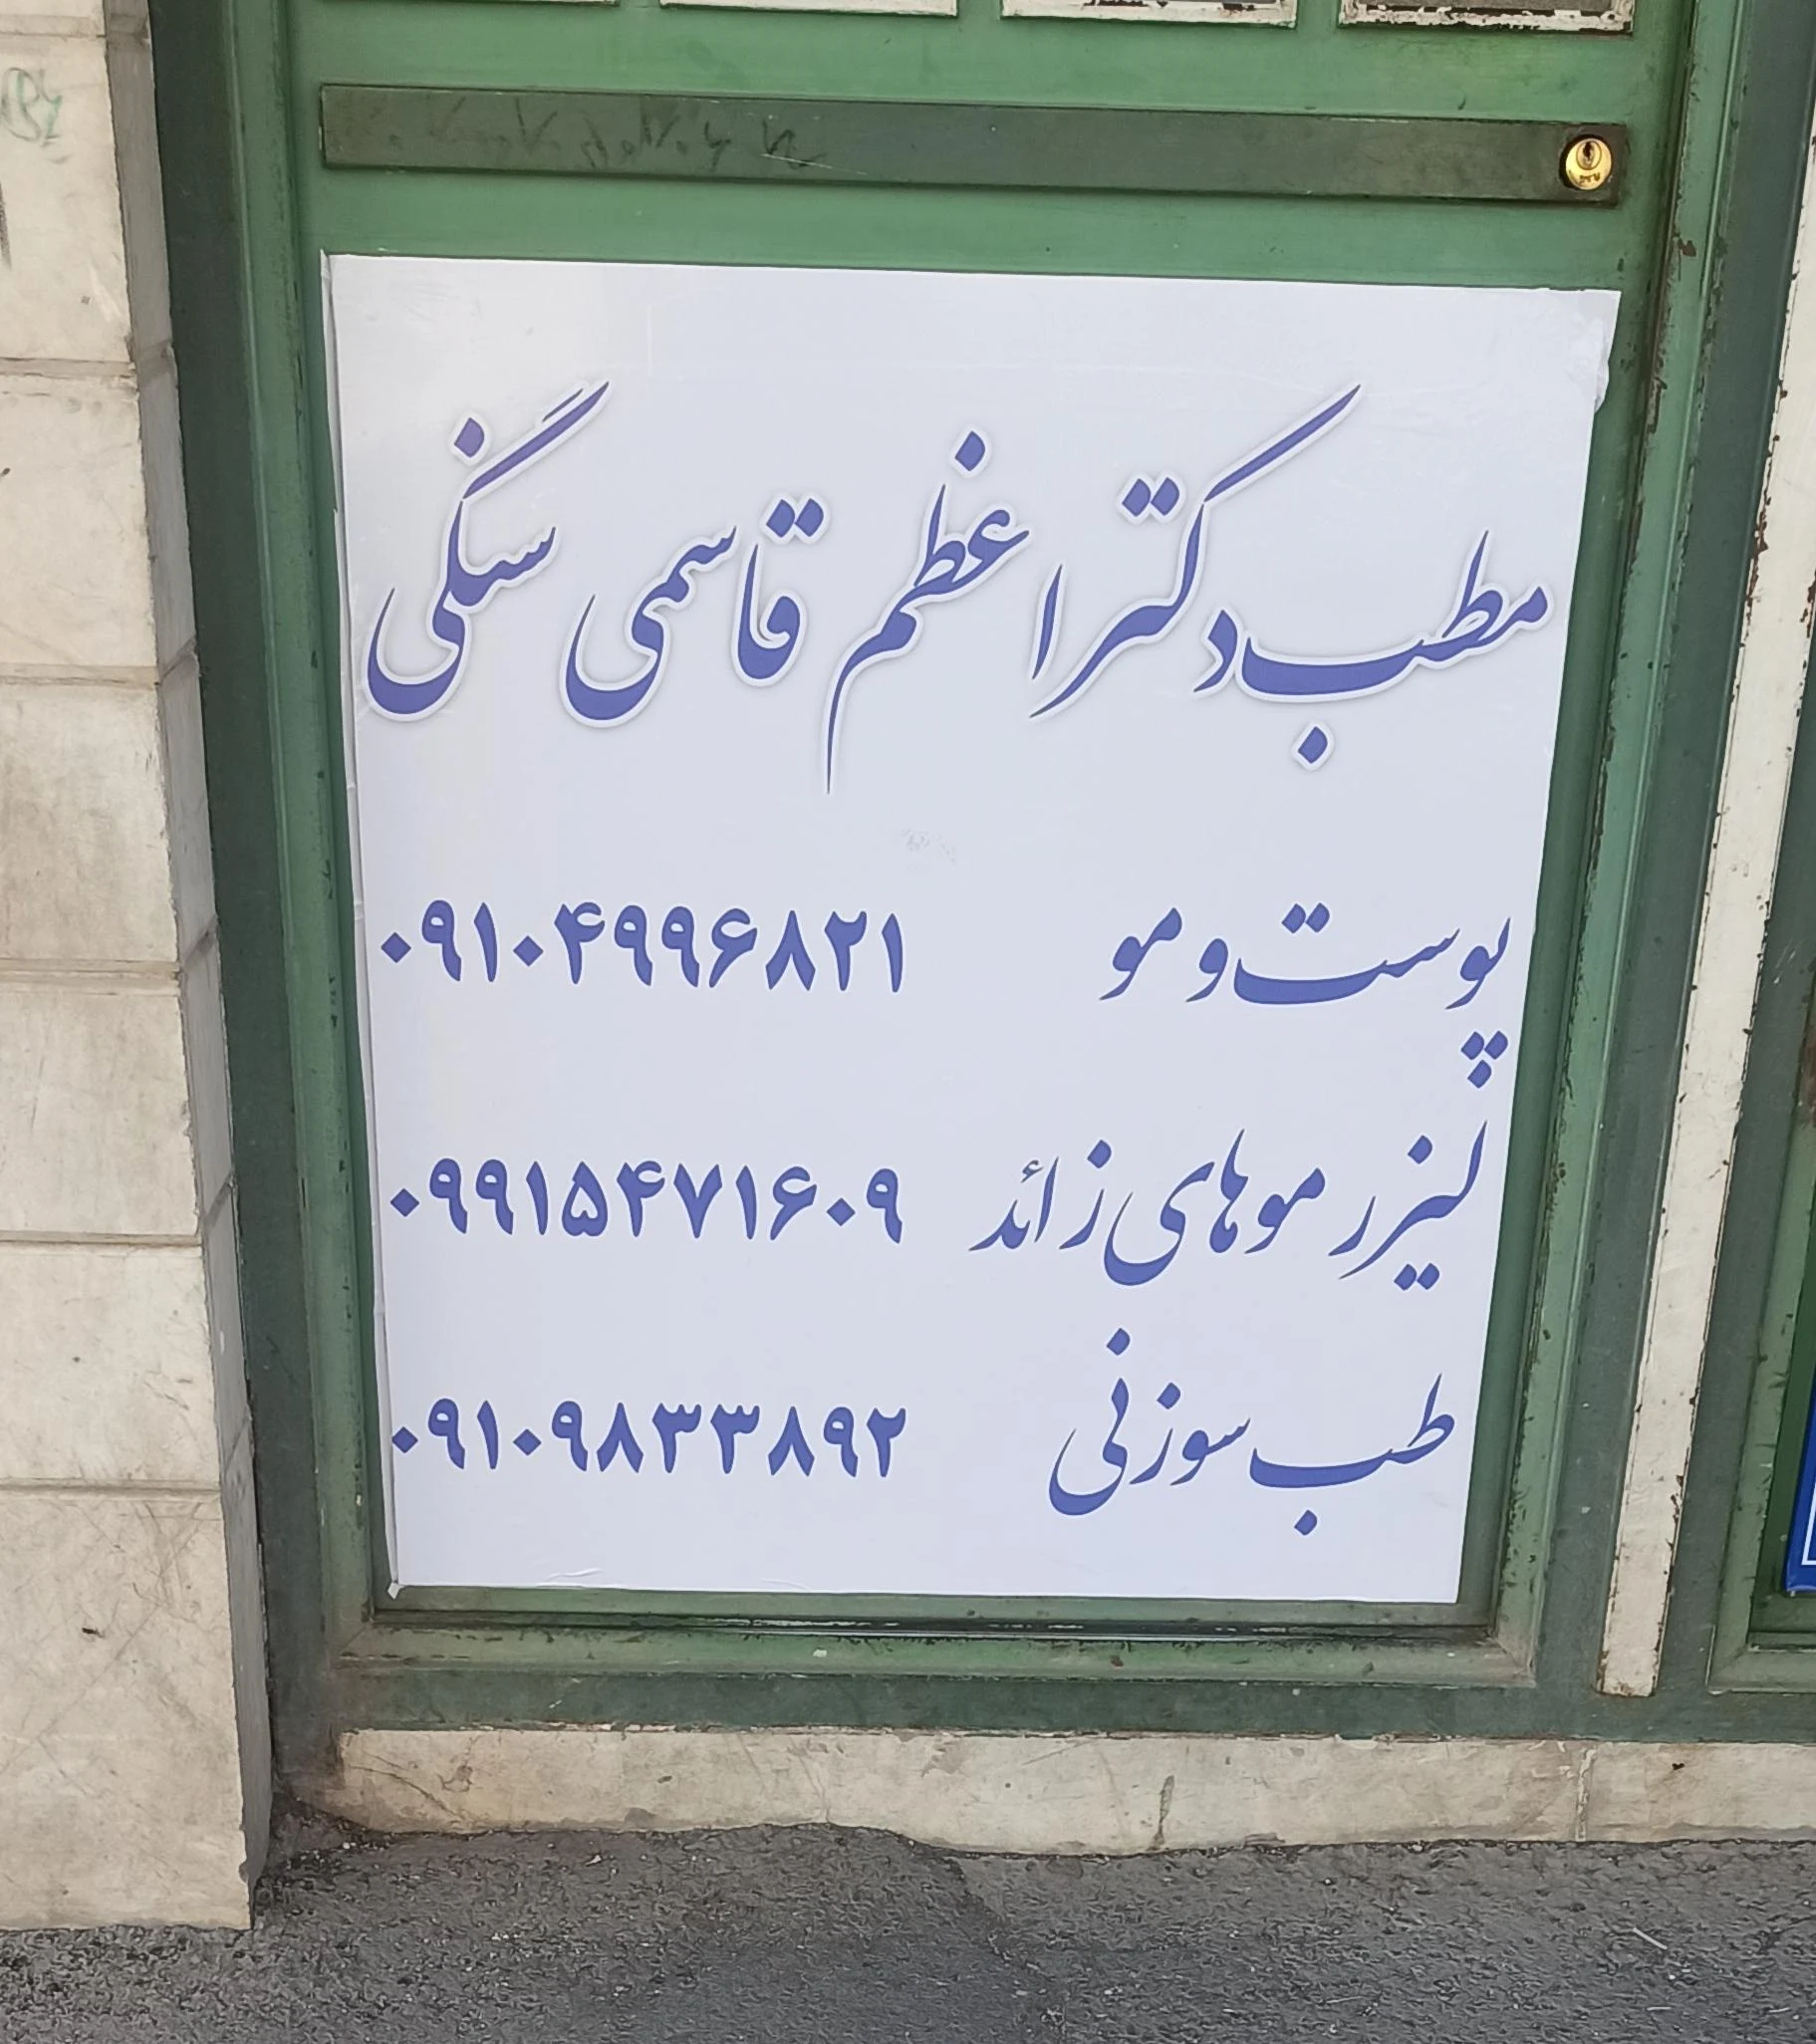 مطب دکتر اعظم قاسمی سنگی
پوست و مو ۰۹۱۰۴۹۹۶۸۲۱
لیزر موهای زائد ۰۹۹۱۵۴۷۱۶۰۹
طب سوزنی ۰۹۱۰۹۸۳۳۸۹۲